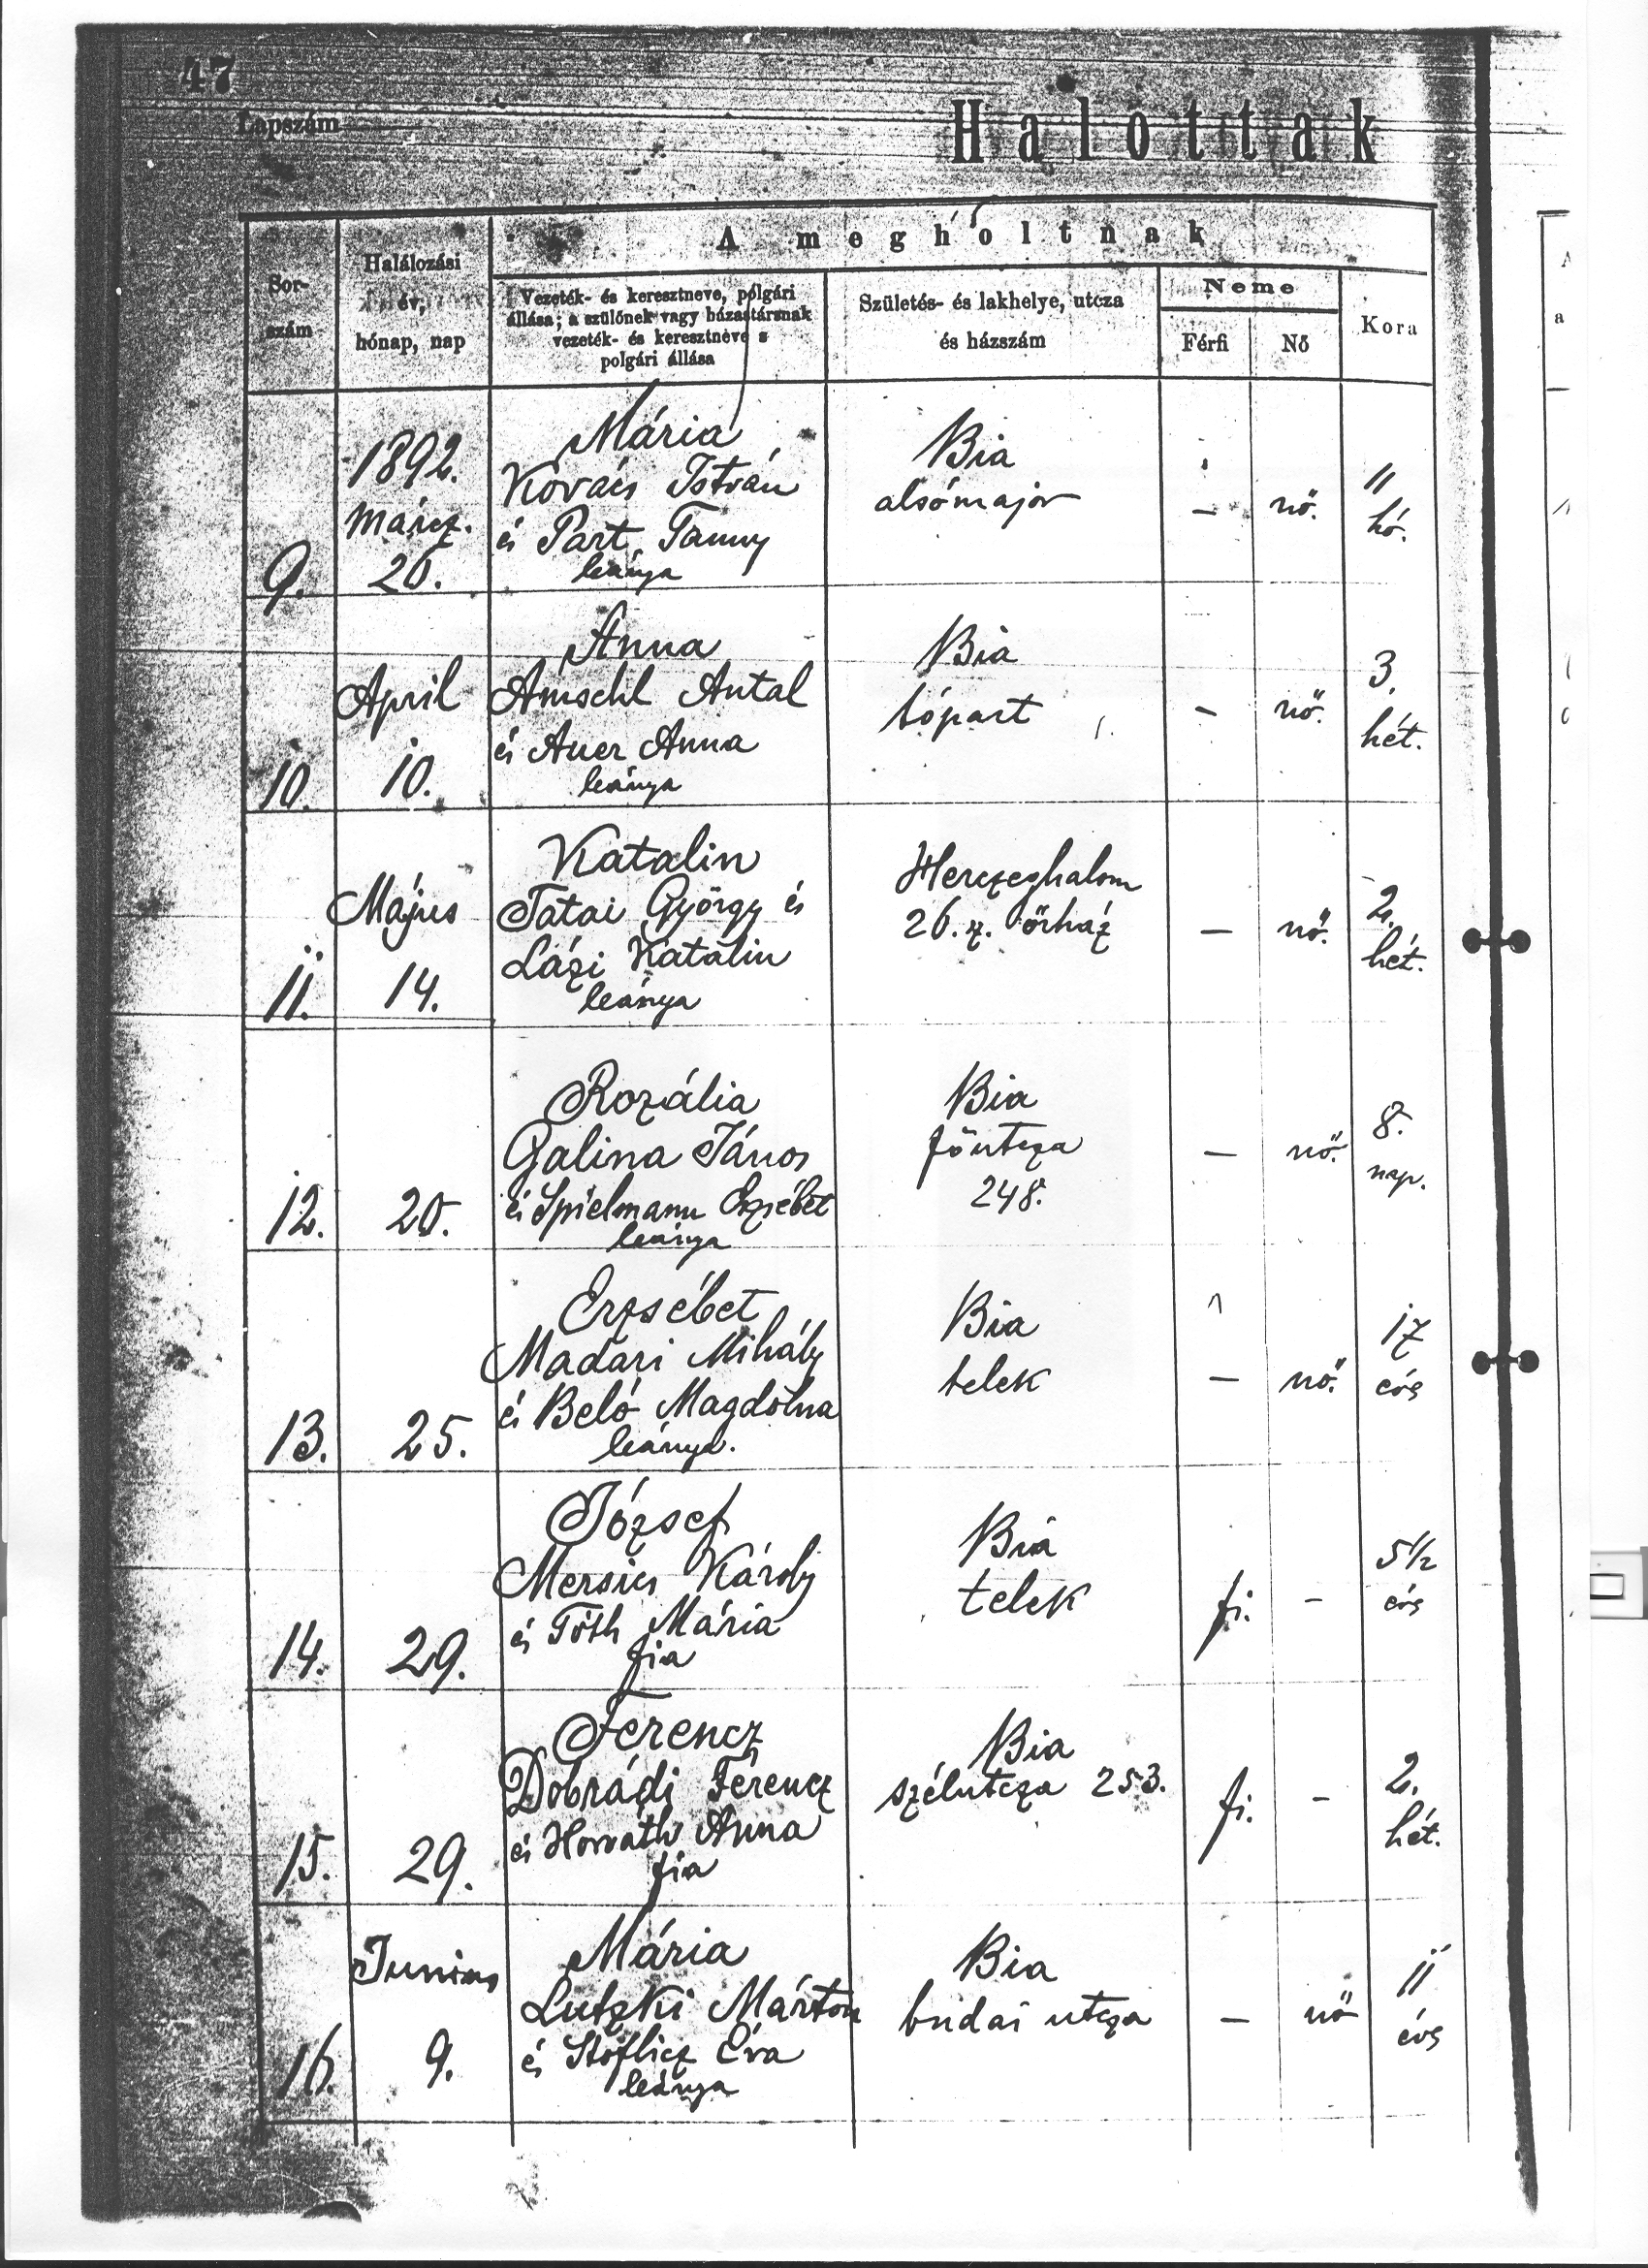 47
Lapszám
Halottak
Sor-
szám
Halálozási
év,
hónap, nap
A megholtnak
Vezeték- és keresztneve, polgári
állása; a szülőnek vagy házastársnak
vezeték- és keresztneve s
polgári állása
Születés- és lakhelye, utcza
és házszám
Neme
Férfi
Nő
Kora
9.
1892.
Márcz.
26.
Mária
Kovács István
és Part Fanny
leánya
Bia
alsómajor
—
nő.
11
hó.
10.
April
10.
Anna
Amschl Antal
és Auer Anna
leánya
Bia
tópart
—
nő.
3.
hét.
11.
Május
14.
Katalin
Tatai György és
Lázi Katalin
leánya
Herczeghalom
26. sz. őrház
—
nő.
2.
hét.
12.
20.
Rozália
Galina János
és Spielmann Erzsébet
leánya
Bia
főutcza
248.
—
nő.
8.
nap.
13.
25.
Erzsébet
Madari Mihály
és Beló Magdolna
leánya.
Bia
telek
—
nő.
17
évs
14.
29.
József
Mersics Károly
és Tóth Mária
fia
Bia
telek
fi.
-
5 1/2
évs
15.
29.
Ferencz
Dobrádi Ferencz
és Horváth Anna
fia
Bia
szélutcza 253.
fi.
-
2.
hét.
16.
Junius
9.
Mária
Lutzki Márton
és Stöflicz Éva
leánya
Bia
budai utcza
—
nő
11
évs